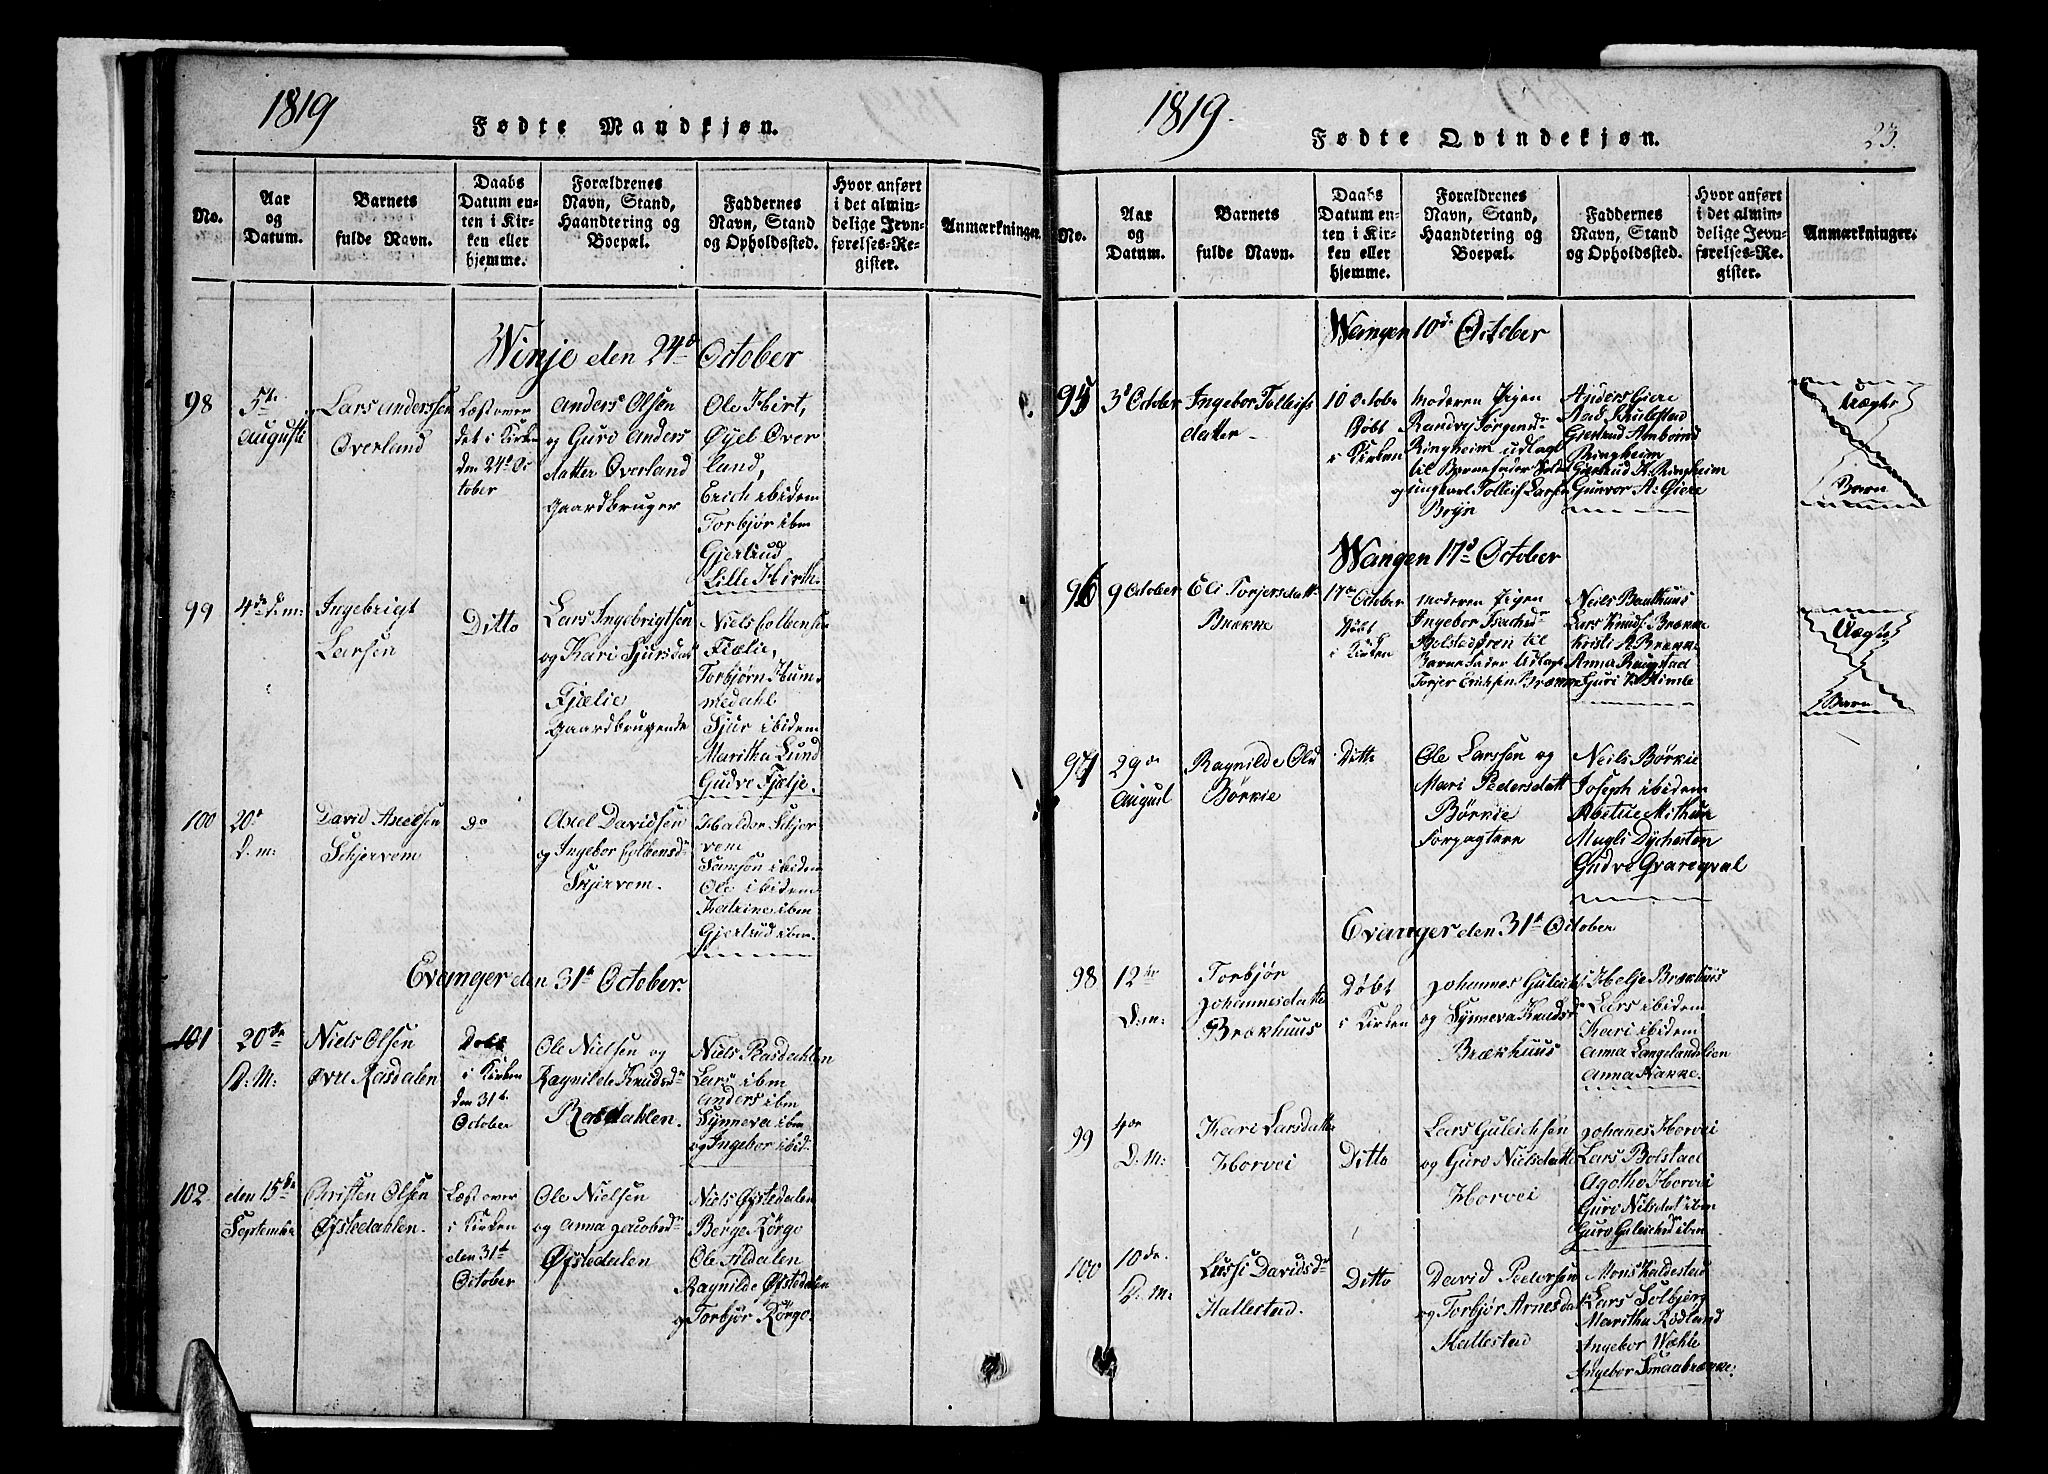 1819
Fødte Mandkjøn.
No.
Aar
og
Datum.
Barnets
fulde Navn.
Daabs
Datum en-
ten i Kir-
ken eller
hjemme.
Forældrenes
Navn, Stand,
Haandtering og
Boepæl.
Faddernes
Navn, Stand
og Opholdssted.
Hvor anført
i det almin-
delige Jevn-
førelses-Re-
gister.
Anmærkninger.
Winje den 24d October
98
5te
Augusti
Lars Anderssen
Overland
Læst over
det i Kirke
den 24d Oc
tober
Anders Olsen
og Guro Anders
datter Overland
Gaardbruger
Ole Hirt,
Øyel Over
land,
Erich ibidem
Torbjør ibm
Gjertrud
Lille Hirth.
99
4de d.m:
Ingebrigt
Larsen
Ditto
Lars Ingebrigtsen
og Kari Sjursdat
Fjælie
Gaardbrugende
Niels Colbensen
Fiælie,
Torbjørn Hum
medahl
Sjur ibidem
Maritha Lund
Gudve Fjælje.
100
20de
d.m:
David Axelsen
Schjervem
do
Axel Davidsen
og Ingebor Colbensd
Skjervem.
Haldor Schjer
vem
Samson ibidem
Ole ibidem
Katrine ibm
Gjertrud ibm.
Evanger den 31te October.
101
20de
D.M:
Niels Olsen
Øvre Rasdalen
Døbt
i Kirken
den 31te
October
Ole Nielsen og
Ragnilde Knudsdr
Rasdahlen.
Niels Rasdahlen
Lars ibm
Anders ibm
Synneva ibm
og Ingebor ibid
102
den 15de
September
Christen Olsen
Øfstedahlen.
Læst over
i Kirken
den 31te
October
Ole Nielsen
og Anna Jacobsdr
Øfstedalen
Niels Øfstedalen
Berge Rørge
Ole Aldalen
Ragnilde Øfstedalen
og Torbjør Rørge.
1819.
Fødte Qvindekjøn.
23.
No.
Aar
og
Datum.
Barnets
fulde Navn.
Daabs
Datum en-
ten i Kir-
ken eller
hjemme.
Forældrenes
Navn, Stand,
Haandtering og
Boepæl.
Faddernes
Navn, Stand
og Opholdssted.
Hvor anført
i det almin-
delige Jevn-
førelses-Re-
gister.
Anmærkninger.
Wangen 10de October
95
3d October
Ingebor Tolleifs
datter
10 Octobe
Døbt
i Kirken
Moderen Pigen
Randvy Jørgensd
Ringheim udlagt
til Barnefader Solda
og ungkarl Tolleif Larsen
Bryn
Anders Giere
Gjertrud
Ringheim
Gjertrud A: Ringheim
Gunvor A: Giere
Uægte
Barn
Wangen 17d October
96
9 October
Eli Torjersdatt
Brække
17de October
Døbt
i Kirken
Moderen Pigen
Ingebor Isachsd
Bolstadøren til
Barnefader Udlagt
Torjer Erichsen Brække
Neils Bauthuns
Lars Knuds: Brække
Kristi A Brække
Anna Rougstad
Guri K Himle
Uægte
Barn
97
29de
August
Ragnilde Olsd
Børkie
Ditto
Ole Larssen og
Mari Pedersdatt
Børkie
Forpagtere
Neils Børkie
Joseph ibidem
Abelue Mithun
Mugli Dychesten
Gudve Gvareqval
Evanger den 31te October
98
12te
D:m:
Torbjør
Johannesdatte
Brækhuus
Døbt
i Kirken
Johannes Guleichs
og Synneva Knudsd
Brækhuus
Helje Brækhuus
Lars ibidem
Kari ibidem
Anna Langelandslien
Anna Nakke.
99
4de
D:M:
Kari Larsdatte
Horvei
Ditto
Lars Guleichsen
og Guro Nielsdatte
Horvei
Johanes Horvei
Lars Bolstad
Agotho Horvei
Guro Nilsdat ibm
Guro Guleichsdr ibm
100
10de
D.M:
Lussi Davidsdr
Hallestad.
Ditto
David Pedersen
og Torbjør Arnesdat
Hallestad
Mons Kaldestad
Lars Solbjerg
Maritha Rødland
Ingebor Wæhle
Ingebor Smaabrække.